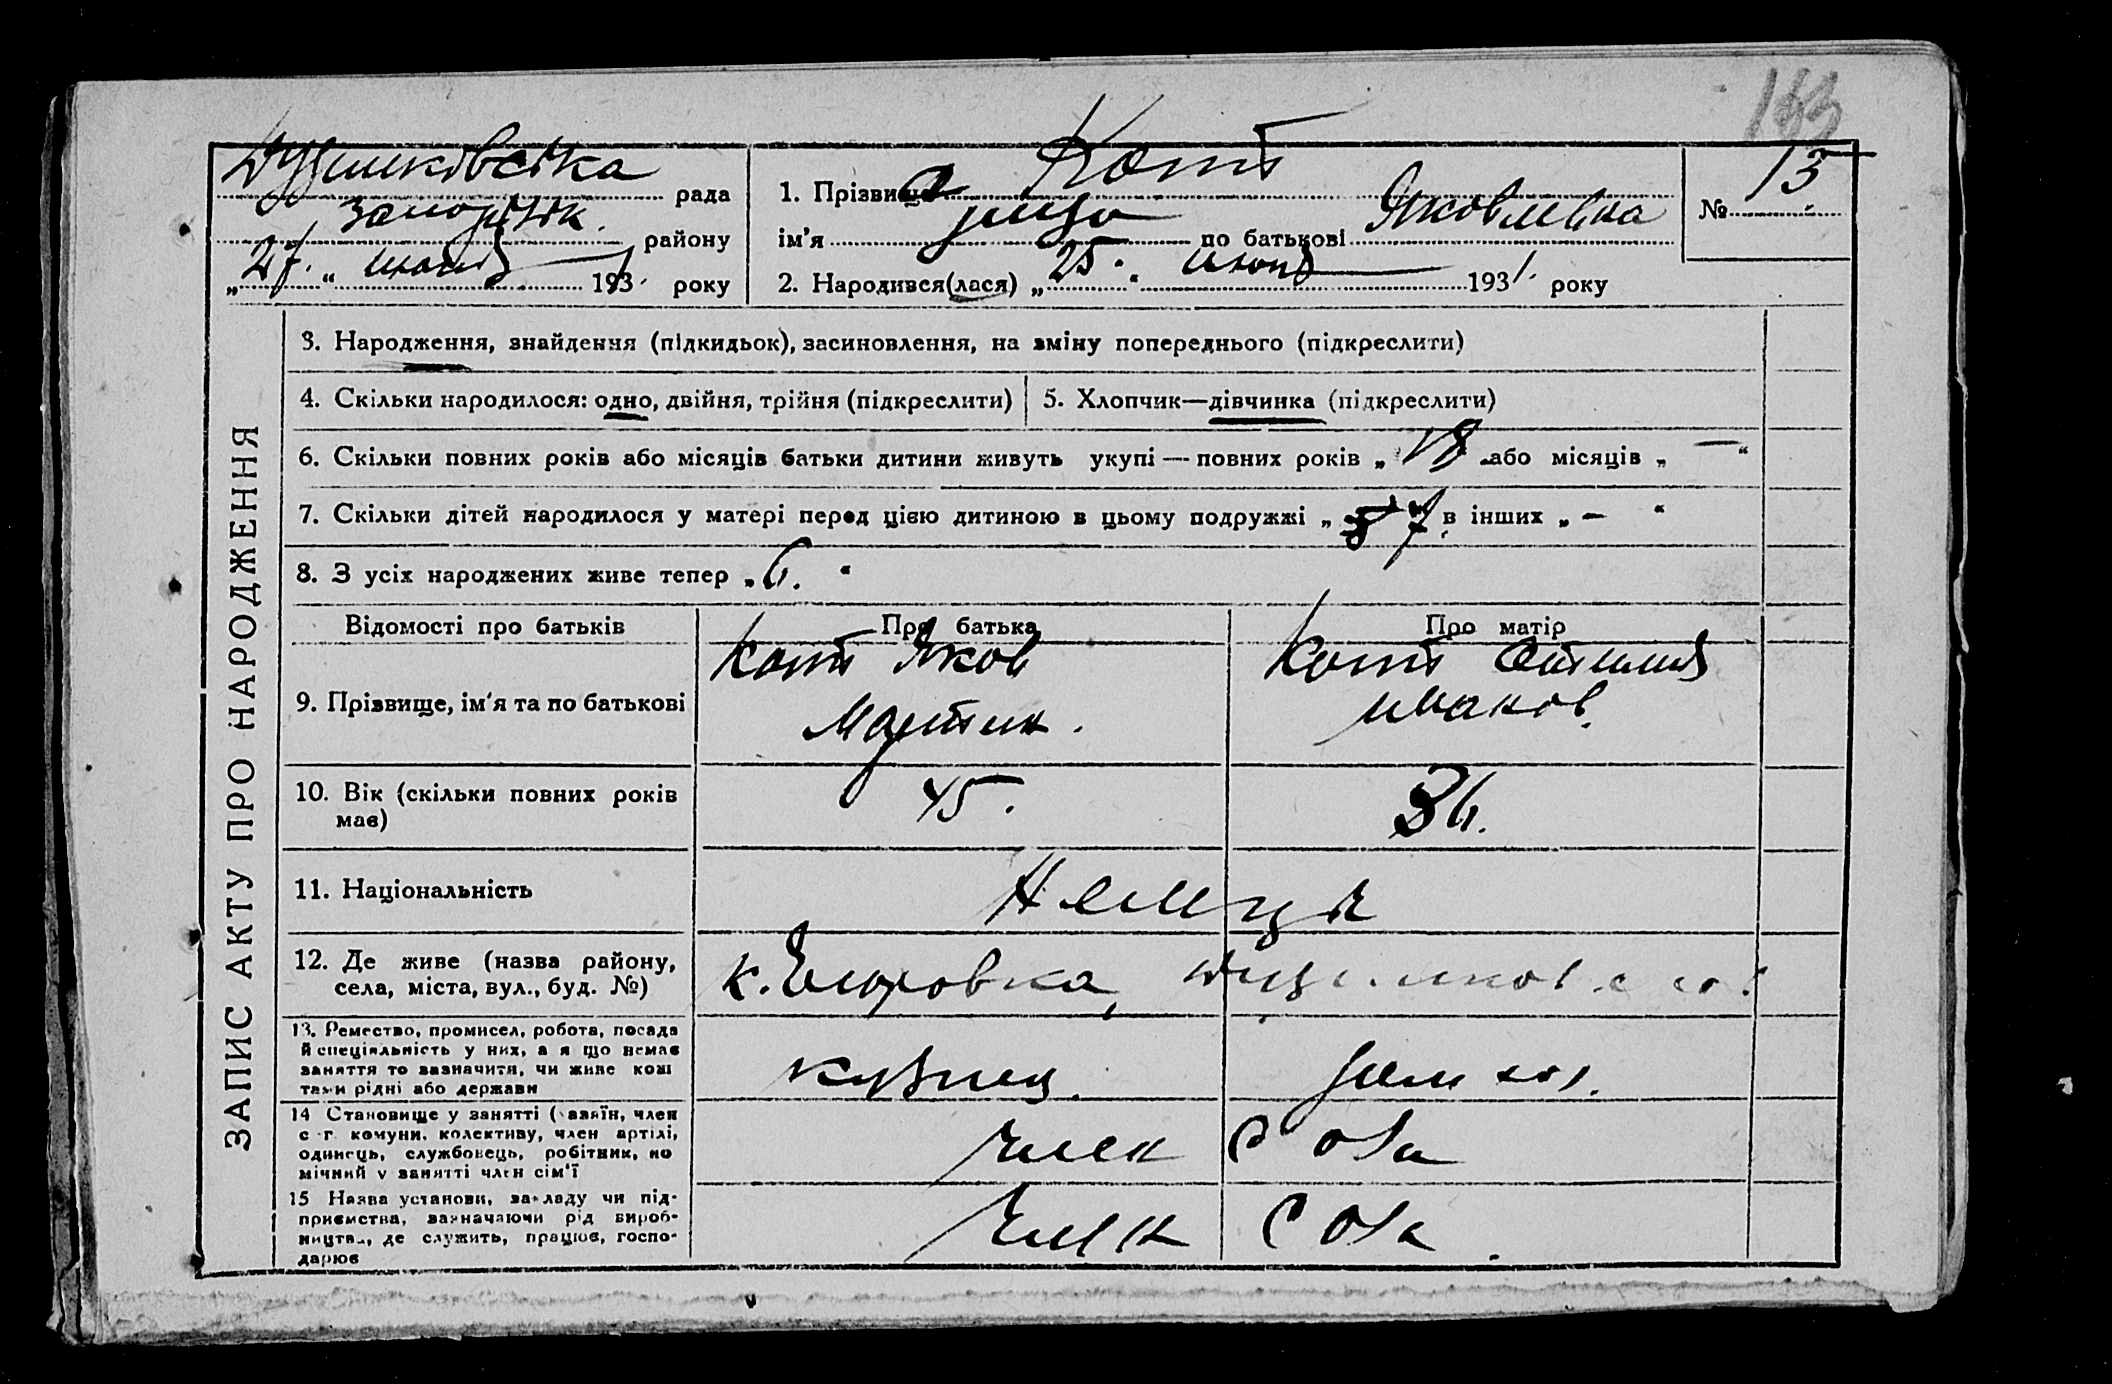 183
рада
Запоріжк. району
„27.“ июня 1931. року
1. Прізвище Котт
ім'я по батькові Яковлевна
№ 13
2. Народився(лася) „25.“ июня 1931. року
ЗАПИС АКТУ ПРО НАРОДЖЕННЯ
3. Народження, знайдення (підкидьок), засиновлення, на зміну попереднього (підкреслити)
4. Скільки народилося: одно, двійня, трійня (підкреслити)
5. Хлопчик—дівчинка (підкреслити)
6. Скільки повних років або місяців батьки дитини живуть укупі — повних років „18 або місяців „—“
7. Скільки дітей народилося у матері перед цією дитиною в цьому подружжі „7 в інших „—“
8. З усіх народжених живе тепер „6.“
Відомості про батьків
Про батька
Про матір
9. Прізвище, ім'я та по батькові
Котт Яков
Мартин.
Котт
10. Вік (скільки повних років
має)
45.
36.
11. Національність
Немцы
12. Де живе (назва району,
села, міста, вул., буд. №)
13. Ремество, промисел, робота, посада
й спеціяльність у них, а я що немає
заняття то зазначити, чи живе кош
тами рідні або держави
кузнец
14 Становище у занятті (хазяїн, член
с-г. комуни, колективу, член артілі,
одинець, службовець, робітник, по
мічний у занятті член сім'ї
член СОЗа
15 Назва установи, закладу чи під-
приємства, зазначаючи рід вироб-
ництва, де служить, працює, госпо-
дарює
член СОЗа.